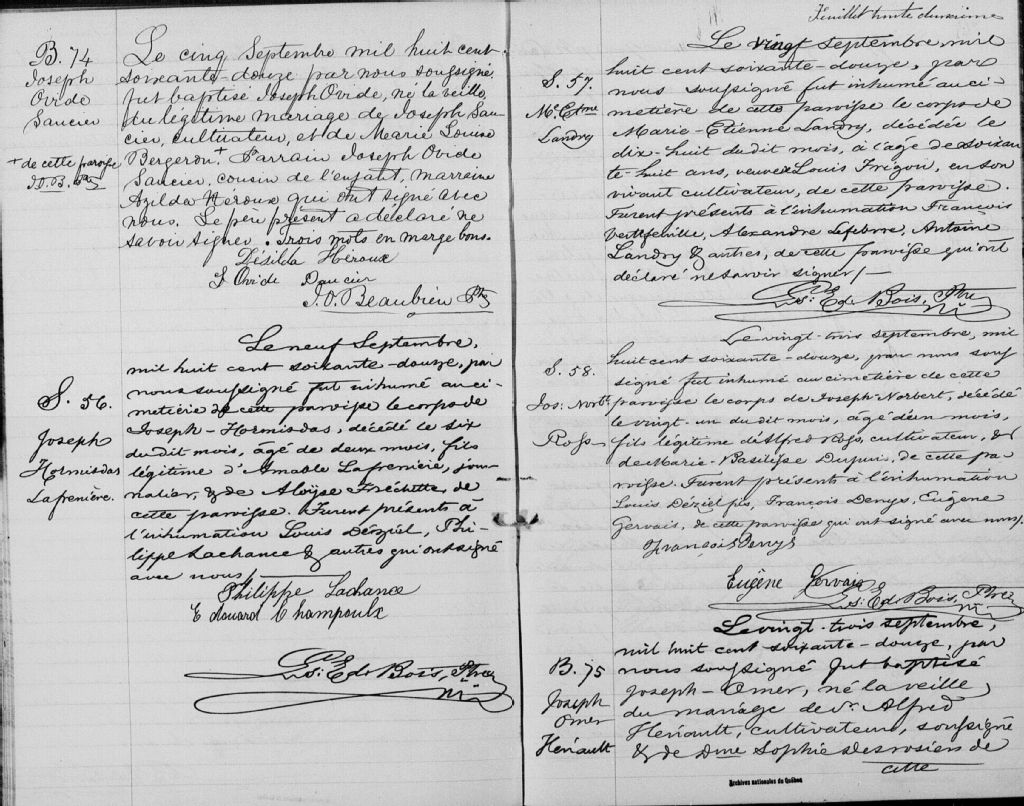 B. 74
Joseph
Ovide
Saucier
+ de cette paroisse
J.O.B. Ptre
Le cinq Septembre mil huit cent
soixante-douze par nous soussigné
fut baptisé Joseph Ovide, né la veille
du légitime mariage de Joseph Sau-
cier, cultivateur, et de Marie Louise
Bergeron.+ Parrain Joseph Ovide
Saucier, cousin de l'enfant, marraine
Azilda Héroux qui ont signé avec
nous. Le père présent a déclaré ne
savoir signer. Trois mots en marge bons.
Désilda Héroux
J Ovide Saucier
J.O. Beaubien Ptre
S. 56.
Joseph
Hormisdas
Lafrenière.
Le neuf Septembre,
mil huit cent soixante-douze, par
nous soussigné fut inhumé au ci-
metière de cette paroisse le corps de
Joseph-Hormisdas, décédé le six
du dit mois, âgé de deux mois, fils
légitime d'Amable Lafrenière, jour-
nalier, & de Aloÿse Fréchette, de
cette paroisse. Furent présents à
l'inhumation Louis Déziel, Phi-
lippe Lachance & autres qui ont signé
avec nous/
Philippe Lachance
Edouard Champoux
Ls. Ed. Bois, Ptre
Feuillet trente deuxième
S. 57.
Me. Etne
Landry
Le vingt septembre, mil
huit cent soixante-douze, par
nous soussigné fut inhumé au ci-
metière de cette paroisse le corps de
Marie-Etienne Landry, décédée le
dix-huit du dit mois, à l'age de soixan-
te-huit ans, veuve Louis Frigon, en son
vivant cultivateur, de cette paroisse.
Furent présents à l'inhumation François
Vertefeuille, Alexandre Lefebvre, Antoine
Landry & autres, de cette paroisse qui ont
déclaré ne savoir signer/—
Ls. Ed. Bois, Ptre
S. 58.
Jos: Norbt.
Ross
Le vingt-trois septembre, mil
huit cent soixante-douze, par nous sous
signé fut inhumé au cimetière de cette
paroisse le corps de Joseph-Norbert, décédé
le vingt-un du dit mois, âgé d'un mois,
fils légitime d'Alfred Ross, cultivateur, &
de Marie-Basilisse Dupuis, de cette pa-
roisse. Furent présents à l'inhumation
Louis Déziel fils, François Denys, Eugène
Gervais, de cette paroisse qui ont signé avec nous/.
François Denys
Eugène Gervais
Ls. Ed. Bois, Ptre
B. 75
Joseph
Omer
Hénault
Le vingt-trois septembre,
mil huit cent soixante-douze, par
nous soussigné fut baptisé
Joseph-Omer, né la veille,
du mariage de Sr. Alfred
Hénault, cultivateur, soussigné
& de Dme Sophie Desrosiers de
cette
Archives nationales du Québec